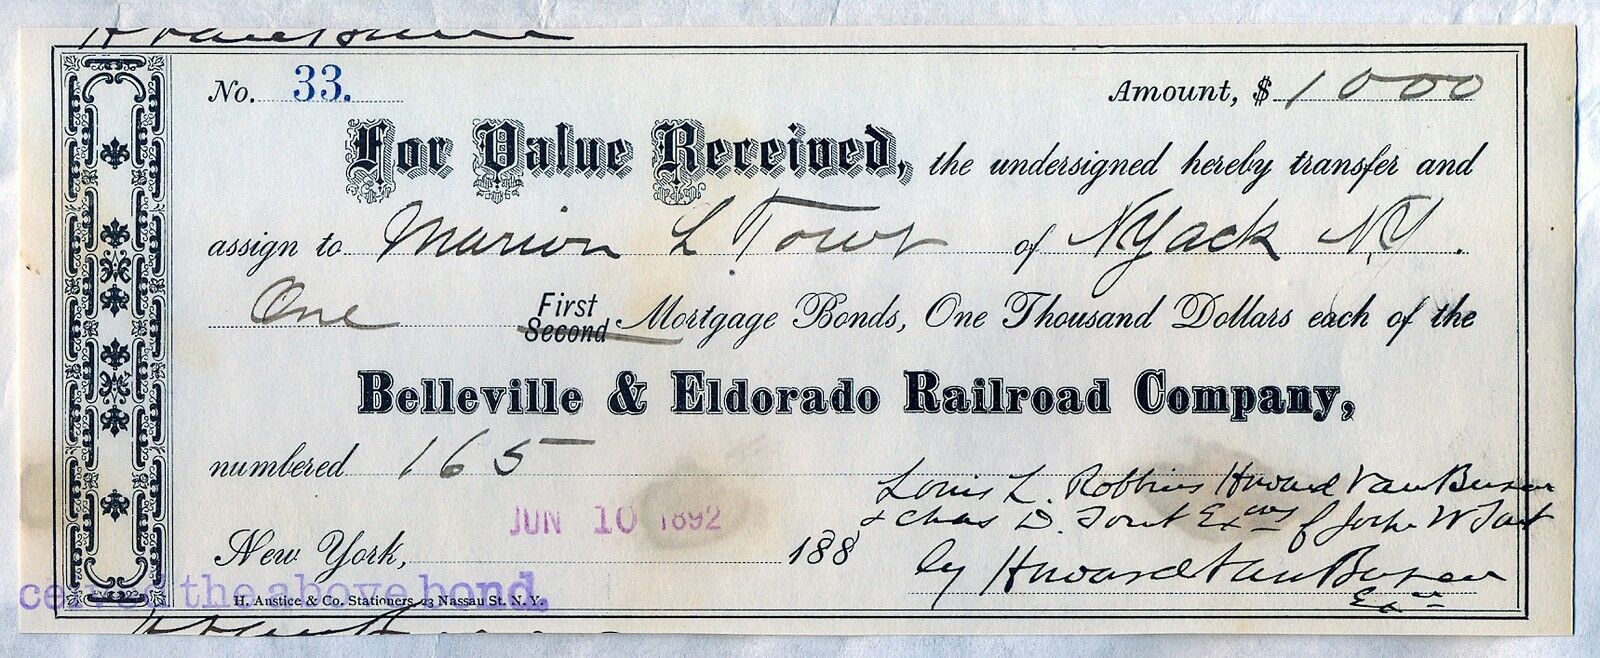 No. 33. Amount, $ 1000
For Value Received, the undersigned hereby transfer and
assign to Marion L. Towt of NYack N.Y.
One First
Second Mortgage Bonds, One Thousand Dollars each of the
Belleville & Eldorado Railroad Company,
numbered 165
Louis L. Robbins Howard Van Buren
& Chas D. Towt Exrs of W Towt
JUN 10 1892
New York, 188
by Howard Van Buren
Exr
the above bond.
H. Anstice & Co. Stationers, 23 Nassau St. N.Y.